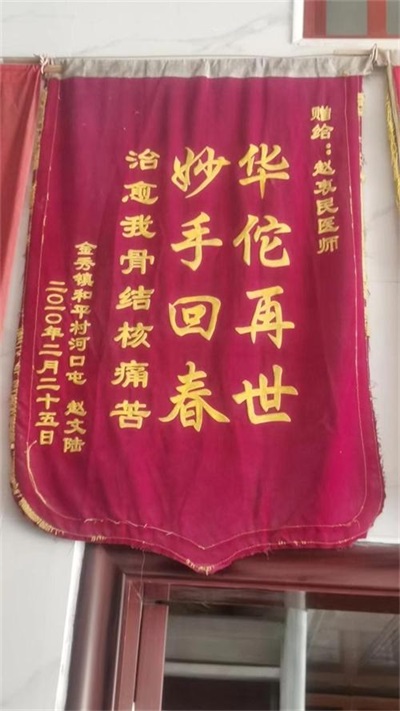 赠给：赵惠民医师
华佗再世
妙手回春
治愈我骨结核痛苦
金秀镇和平村河口屯 赵文陆
二〇二〇年二月二十五日